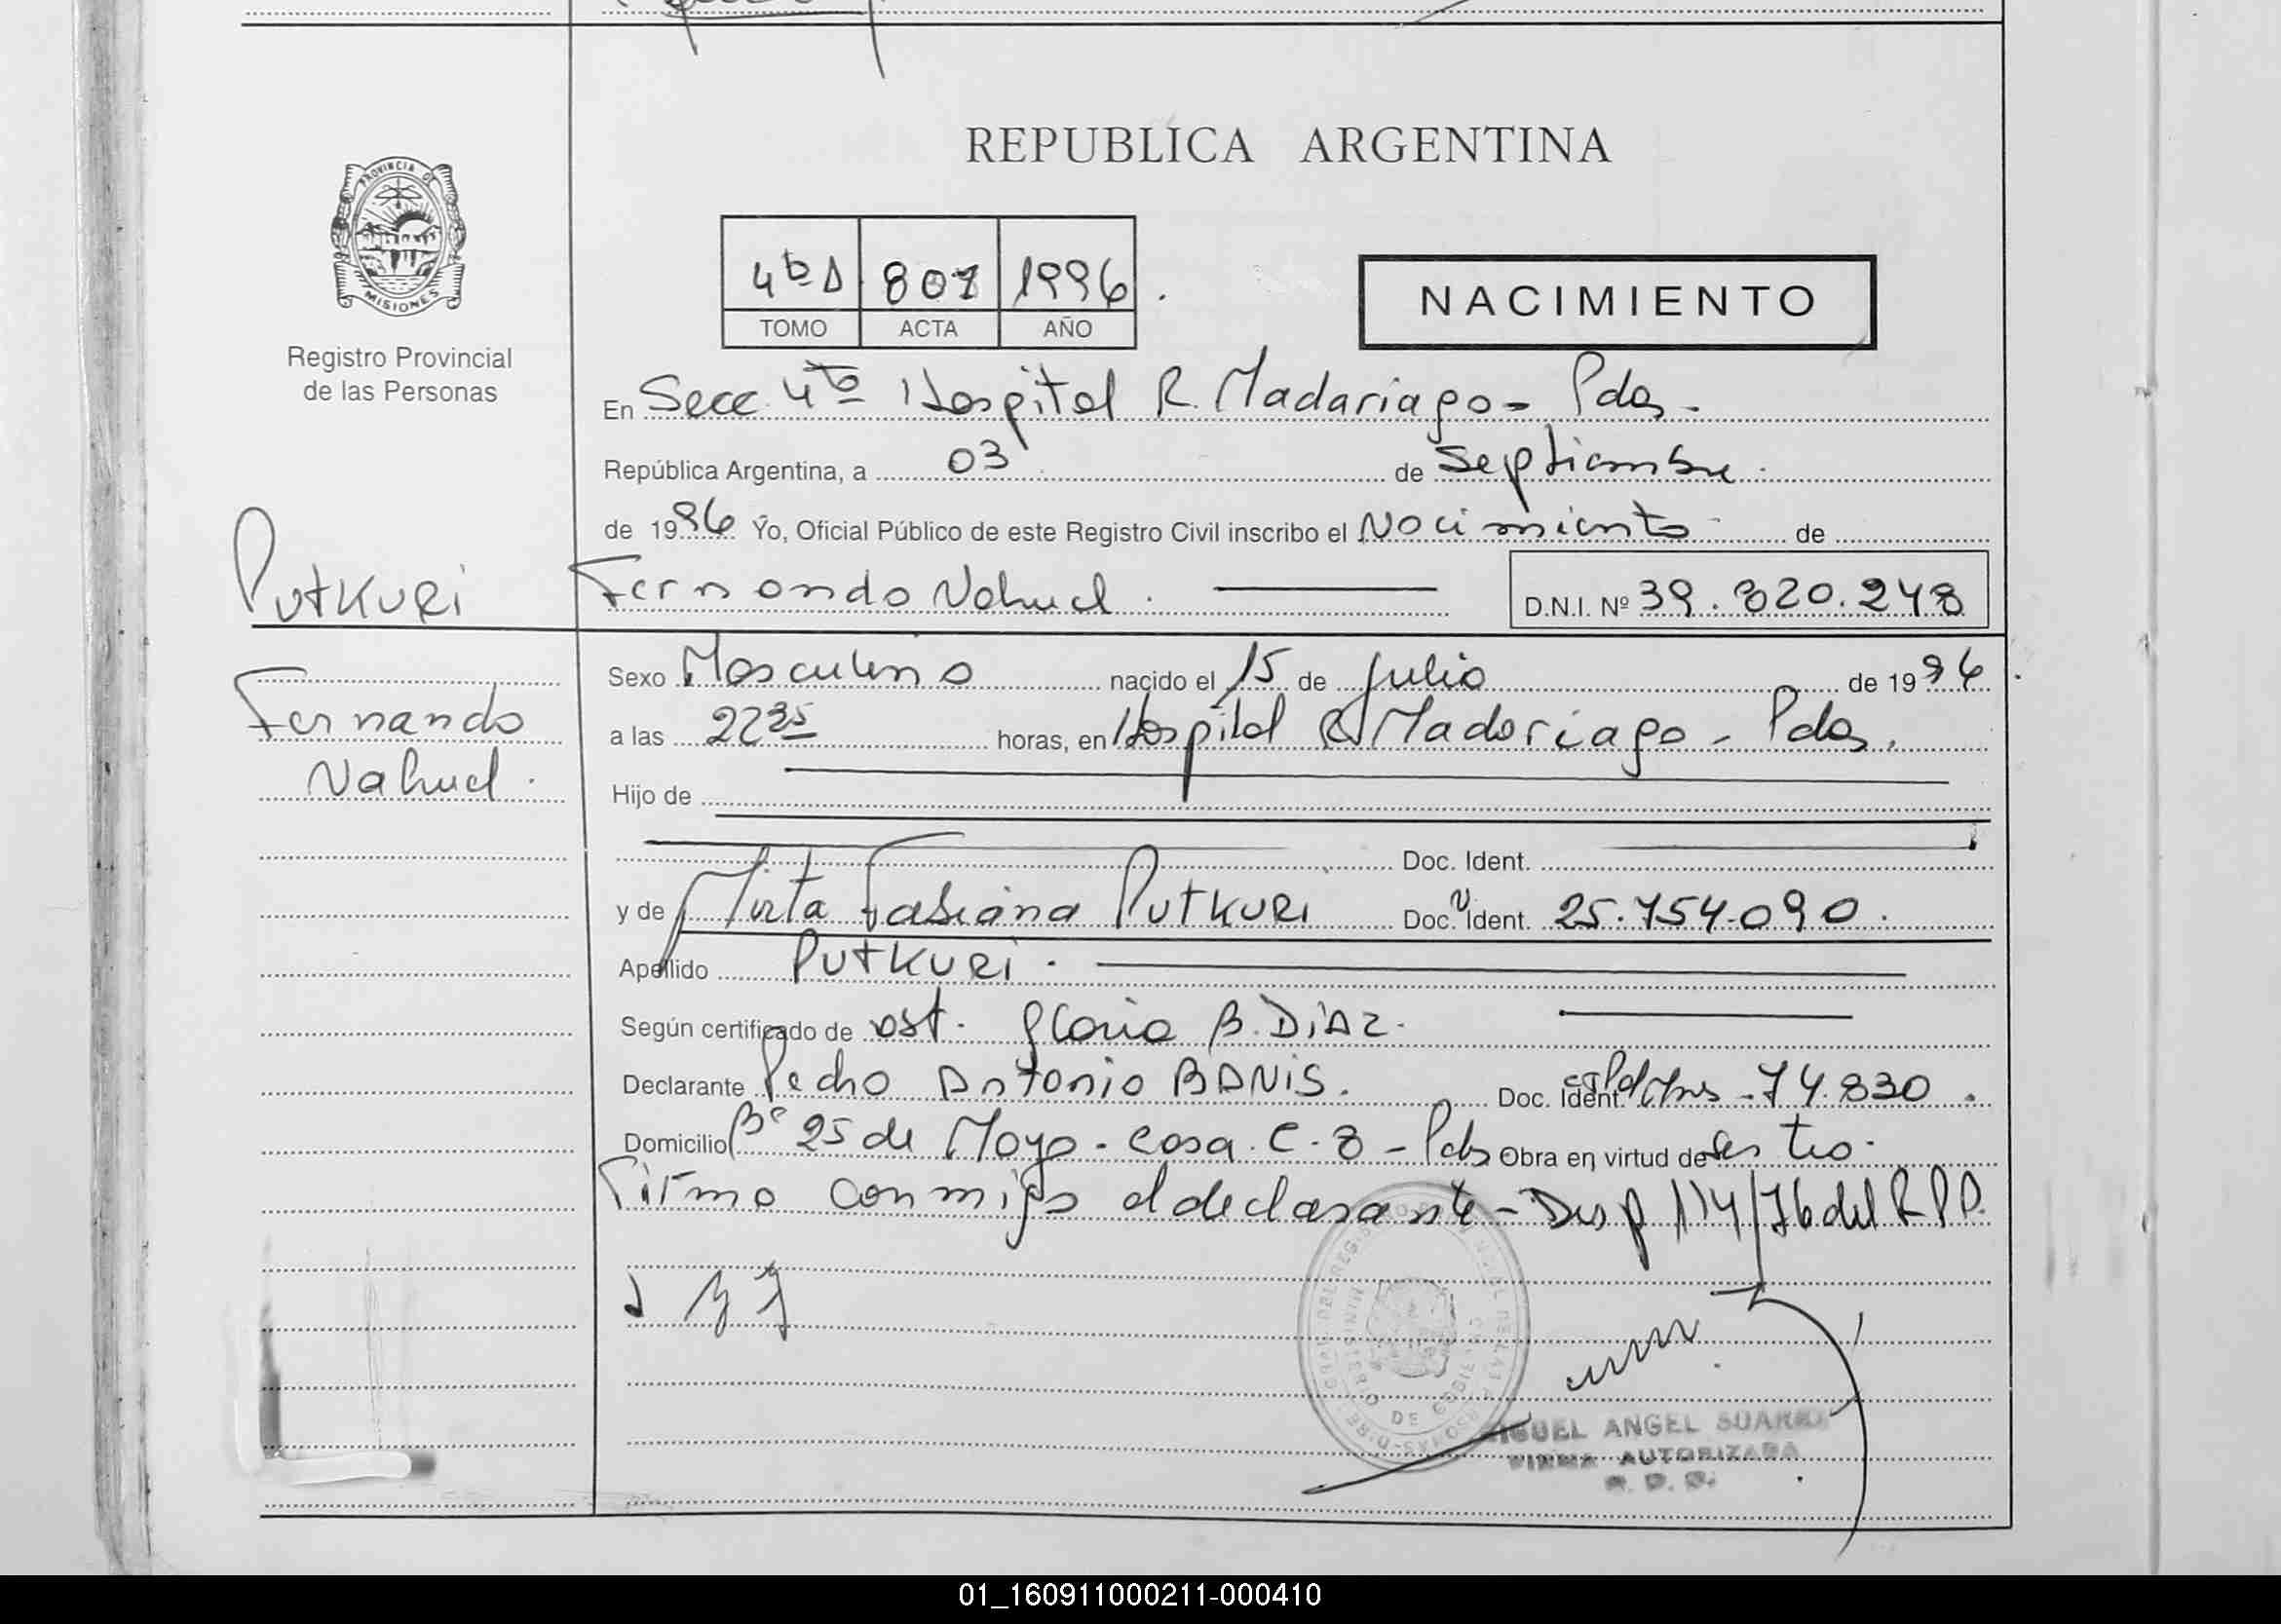 REPUBLICA ARGENTINA
PROVINCIA DE
MISIONES
Registro Provincial
de las Personas
4to A 801 1996
TOMO ACTA AÑO
NACIMIENTO
En Secc 4to Hospital R. Madariaga - Pdas -
República Argentina, a 03 de Septiembre
de 1996 Yo, Oficial Público de este Registro Civil inscribo el Nacimiento de
PUTKURI
Fernando Nahuel
D.N.I. Nº 39.820.248
Fernando
Nahuel
Sexo Masculino nacido el 15 de Julio de 1996
a las 2235 horas, en Hospital R. Madariaga - Pdas.
Hijo de
Doc. Ident.
y de Mirta Fabiana PUTKURI Doc. Ident. 25.754.090.
Apellido PUTKURI.
Según certificado de ost. Gloria B. DIAZ.
Declarante Pedro Antonio BANIS. Doc. Ident. 74.830.
Domicilio Bº 25 de Mayo - Casa. C-8 - Pdas Obra en virtud de ser tio.
Firma conmigo el declarante - Disp 114/76 del R.P.P.
MIGUEL ANGEL SUAREZ
FIRMA AUTORIZADA
R. P. P.
01_160911000211-000410